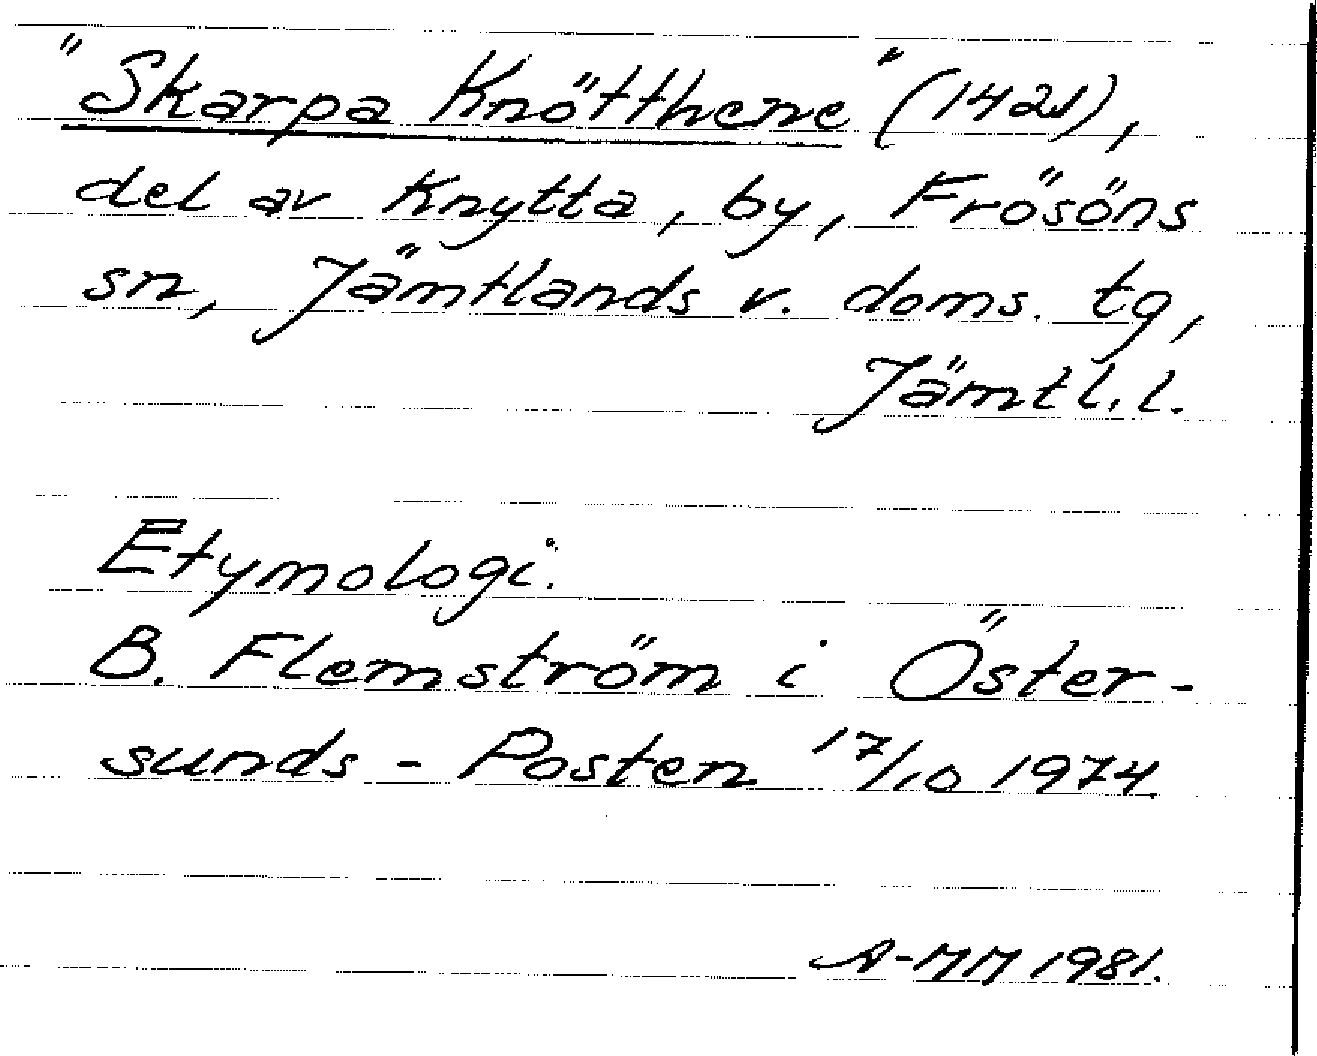 "Skarpa Knötthene" (1421),
del av Knytta, by, Frösöns
sn, Jämtlands v. doms. tg,
Jämtl.l.
Etymologi:
B. Flemström i Öster-
sunds-Posten 17/10 1974.
A-MM 1981.